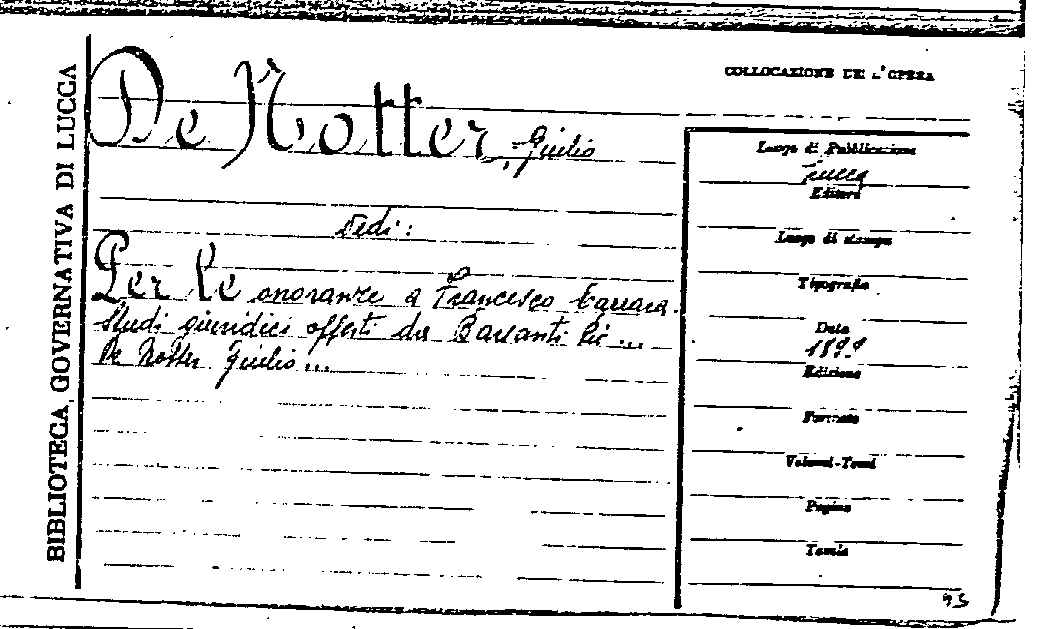 BIBLIOTECA GOVERNATIVA DI LUCCA
COLLOCAZIONE DELL'OPERA
De Notter, Giulio
Vedi:
Per le onoranze a Francesco Carrara.
Studi giuridici offerti da Barsanti Pic...
De Notter Giulio...
Luogo di Pubblicazione
Lucca
Editore
Luogo di stampa
Tipografia
Data
1899
Edizione
Formato
Volumi-Tomi
Pagine